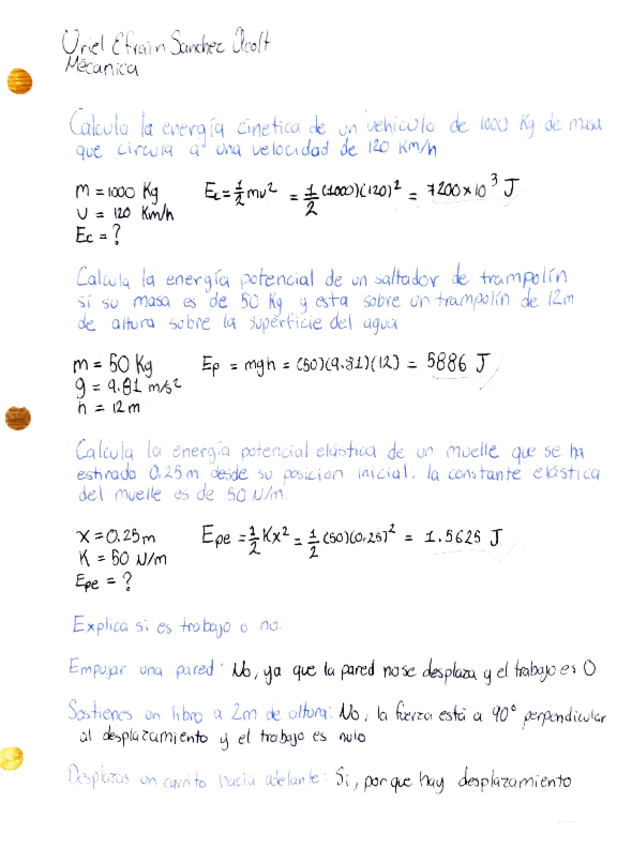 Uriel Efrain Sanchez Ocolt
Mecanica
Calcula la energía cinetica de un vehículo de 1000 Kg de masa
que circula a una velocidad de 120 Km/h
m = 1000 Kg Ec = 1/2 mv² = 1/2 (1000)(120)² = 7200 x 10³ J
v = 120 Km/h
Ec = ?
Calcula la energía potencial de un saltador de trampolín
si su masa es de 50 Kg y esta sobre un trampolín de 12m
de altura sobre la superficie del agua
m = 50 Kg Ep = mgh = (50)(9.81)(12) = 5886 J
g = 9.81 m/s²
h = 12 m
Calcula la energía potencial elástica de un muelle que se ha
estirado 0.25 m desde su posicion inicial. la constante elástica
del muelle es de 50 N/m.
x = 0.25 m Epe = 1/2 Kx² = 1/2 (50)(0.25)² = 1.5625 J
K = 50 N/m
Epe = ?
Explica si es trabajo o no.
Empujar una pared: No, ya que la pared no se desplaza y el trabajo es 0
Sostienes un libro a 2m de altura: No, la fuerza está a 90° perpendicular
al desplazamiento y el trabajo es nulo
Desplazas un carrito hacia adelante: Si, porque hay desplazamiento